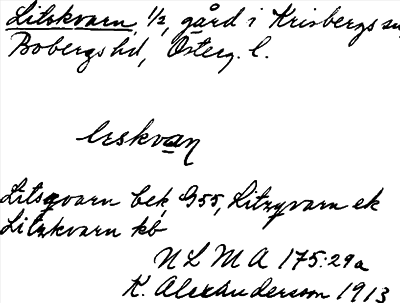 Litskvarn, 1/2, gård i Krisbergs sn,
Bobergs hd, Österg. l.
leskvan
Litsqvarn bek G55, Litzqvarn ek
Litzkvarn kb
NLMA 175:29a
K. Alexanderson 1913